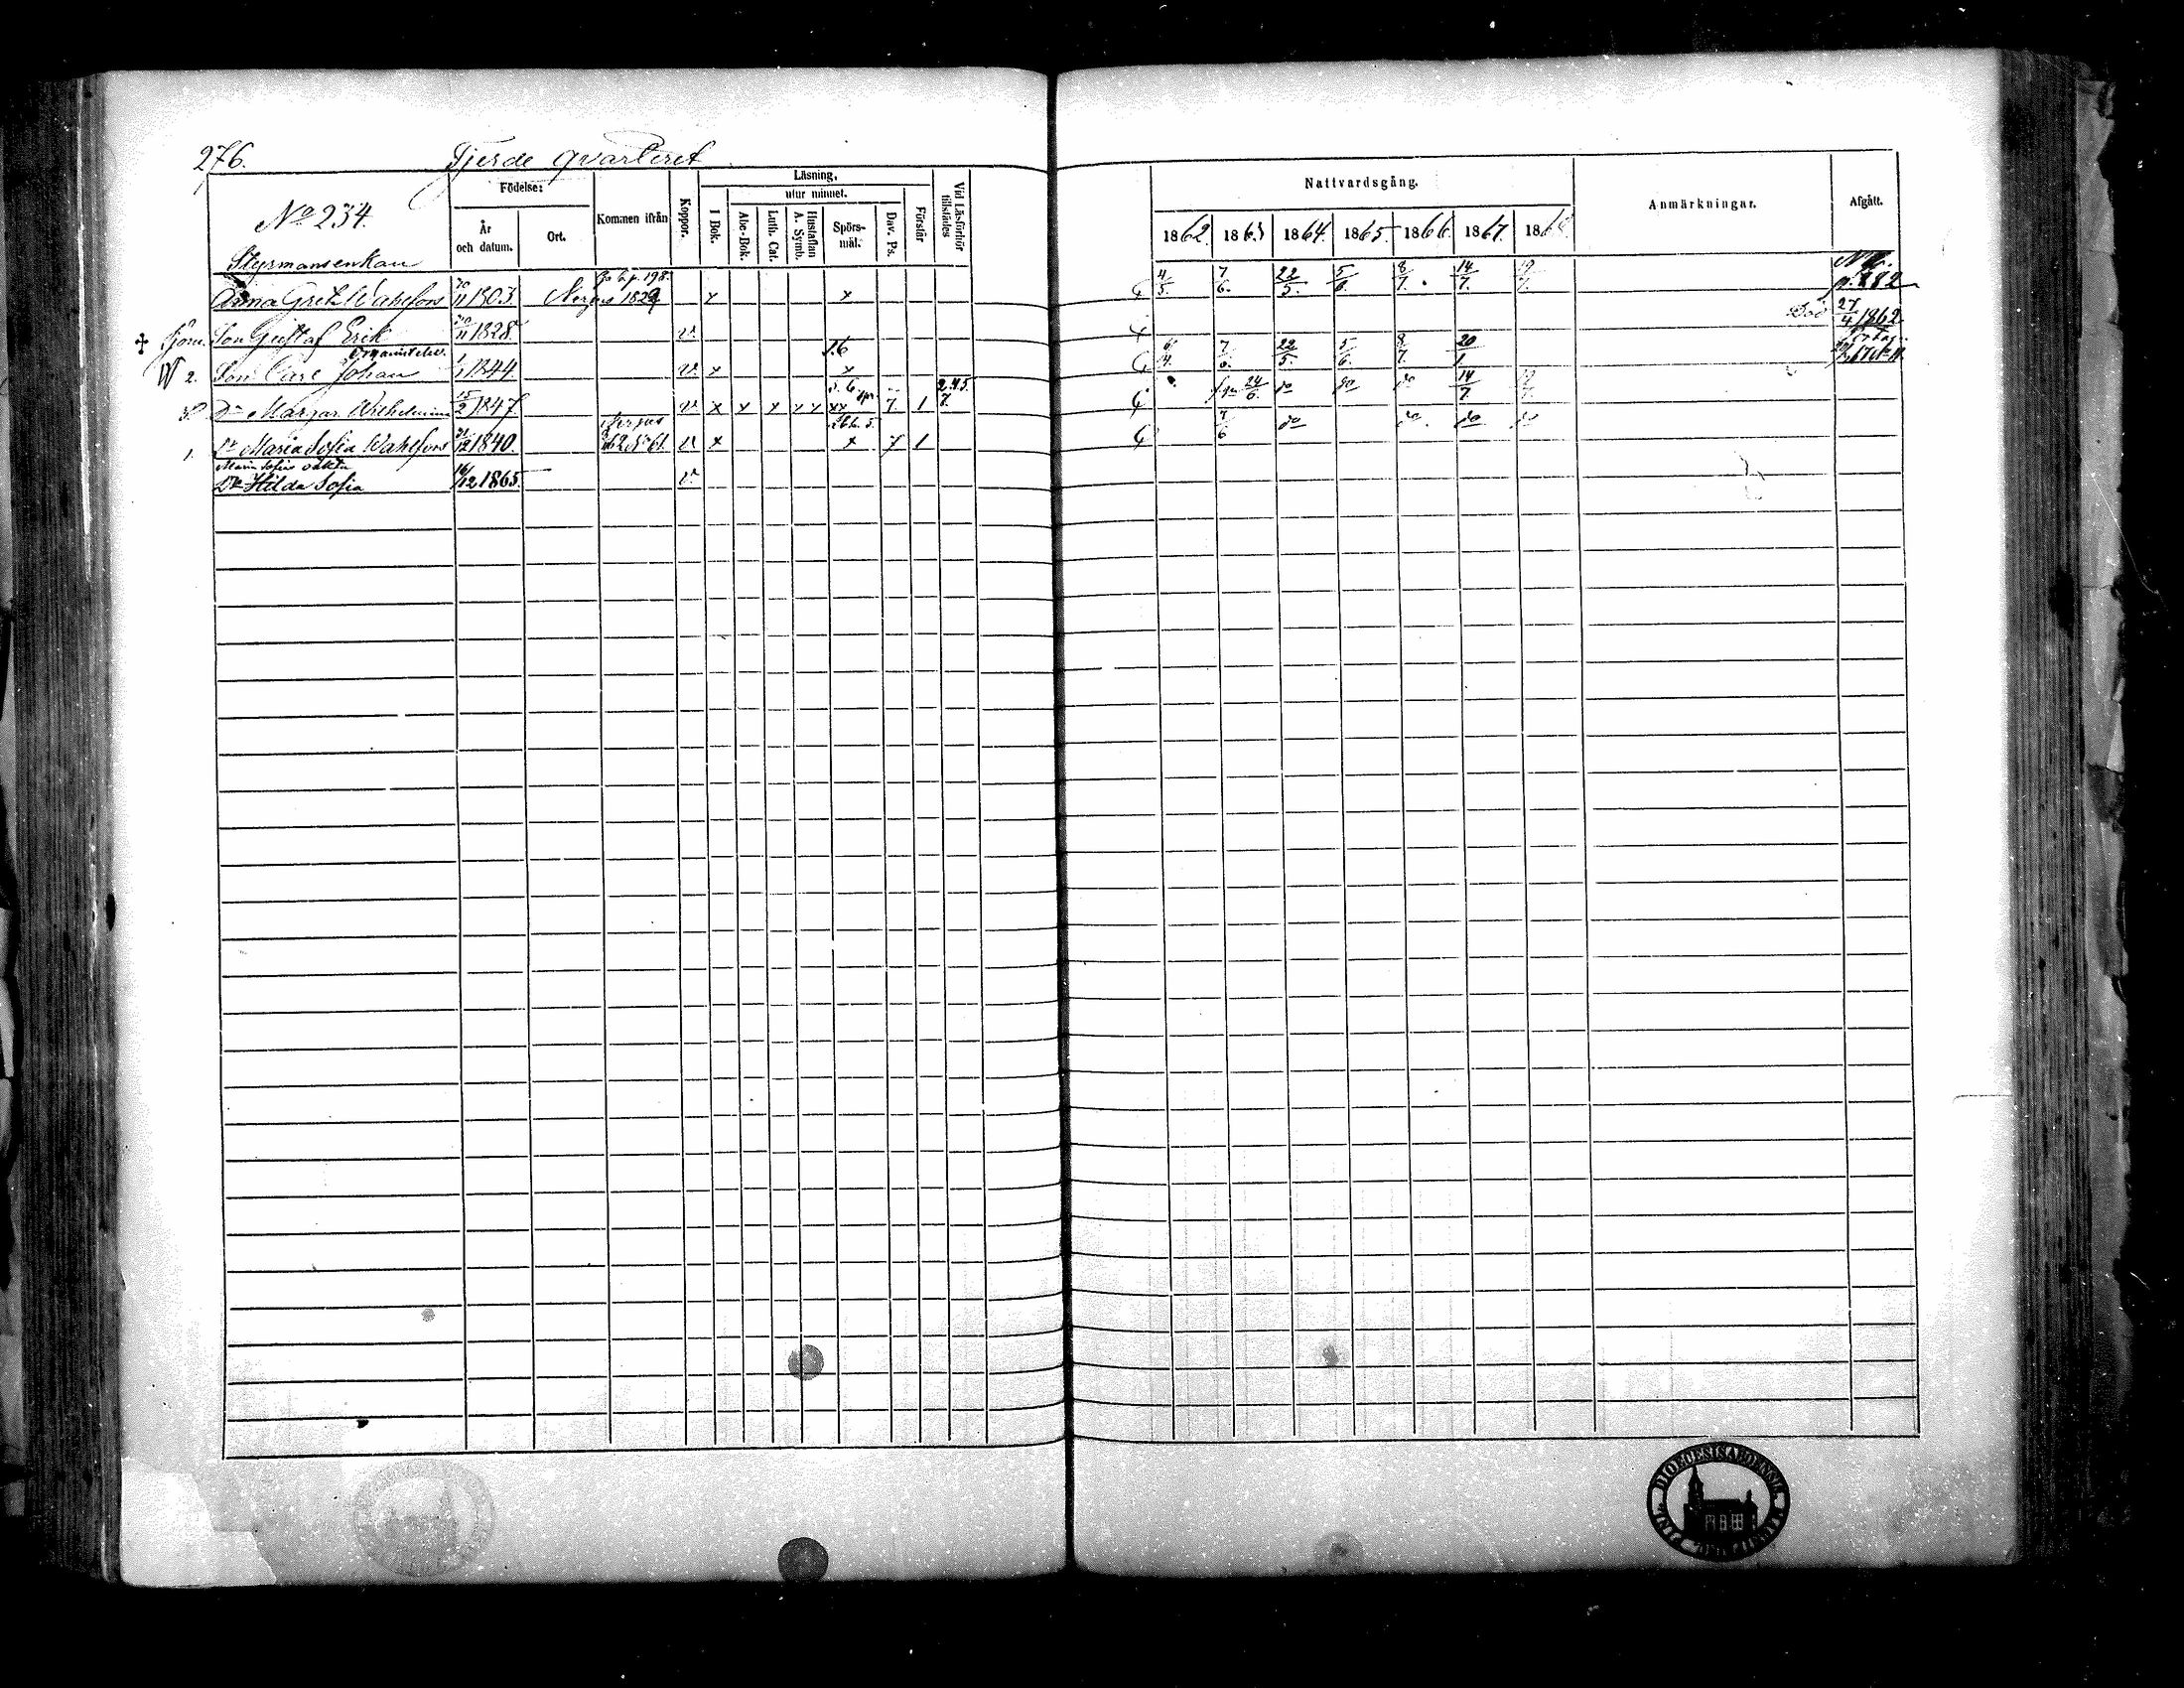 276. Fjerde qvarteret
No 234.
Födelse:
År och datum.
Ort.
Kommen ifrån
Koppor.
Läsning.
I Bok.
utur minnet.
Abc-Bok.
Luth. Cat.
Hustaflan A. Symb.
Spörsmål.
Dav. Ps.
Förstår
Vid Läsförhör tillstädes
Nattvardsgång.
1862. 1863 1864. 1865. 1866. 1867. 1868.
Anmärkningar.
Afgått.
Styrmansenkan
Anna Greta Wahlfors 11 1803. 1829 x x 4/5. 7/6. 22/5. 5/6. 8/7. 14/7. p. 882
Son Gustaf Erik 20/11 1828. v. Död 27/4 1862
2. Son Carl Johan 1/1 1844. v. x x 7/6. 22/5. 5/6. 8/7. 20/1
Dr Margar. Wilhelmina 15/2 1847. v. x x x x x xx 7. 1 24/6. do do do 14/7.
1. Dr Maria Sofia Wahlfors 21/12 1840. v. x x 7 1 7/6 do do do do
Maria Sofias oäkta
Dr Hilda Sofia 16/12 1865. v.